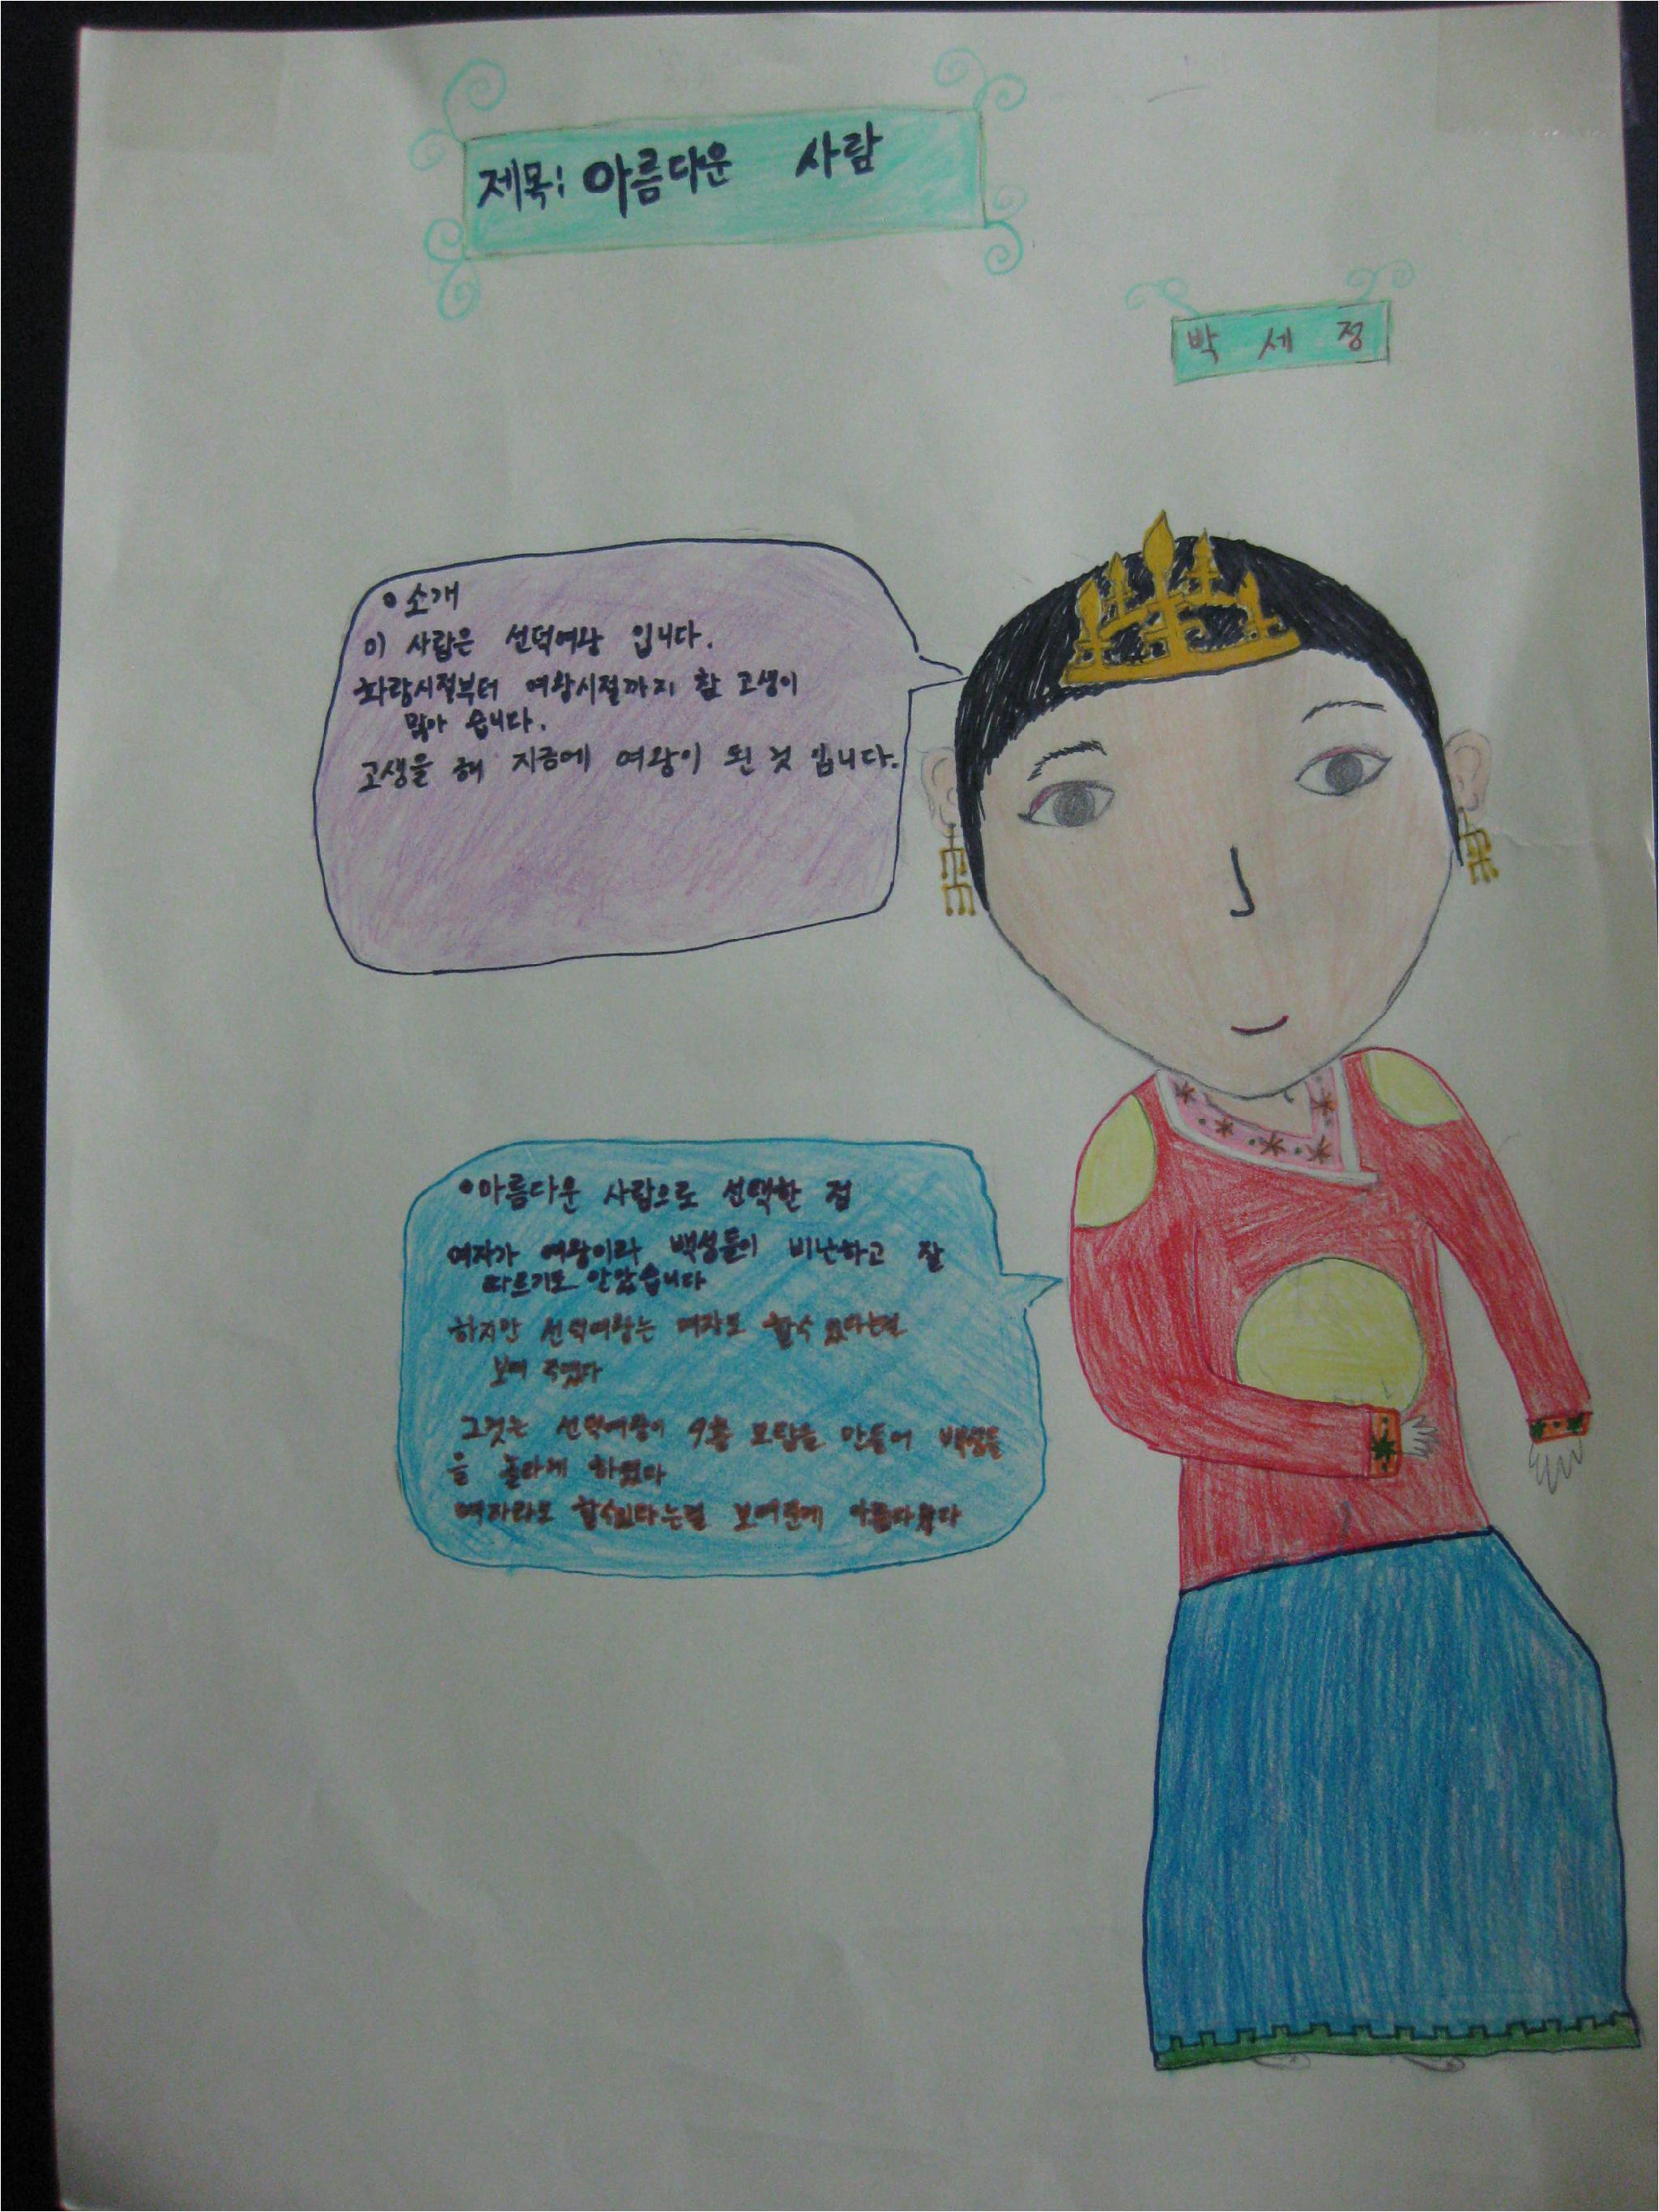 제목: 아름다운 사람
박 세 정
•소개
이 사람은 선덕여왕 입니다.
화랑시절부터 여왕시절까지 참 고생이
많아 습니다.
고생을 해 지금에 여왕이 된 것 입니다.
•아름다운 사람으로 선택한 점
여자가 여왕이라 백성들이 비난하고 잘
따르기도 안았습니다
하지만 선덕여왕는 여자도 할수 있다는걸
보여 주었다
그것는 선덕여왕이 9층 모탑을 만들어 백성들
을 놀라게 하였다
여자라도 할수있다는걸 보여준게 아름다웠다